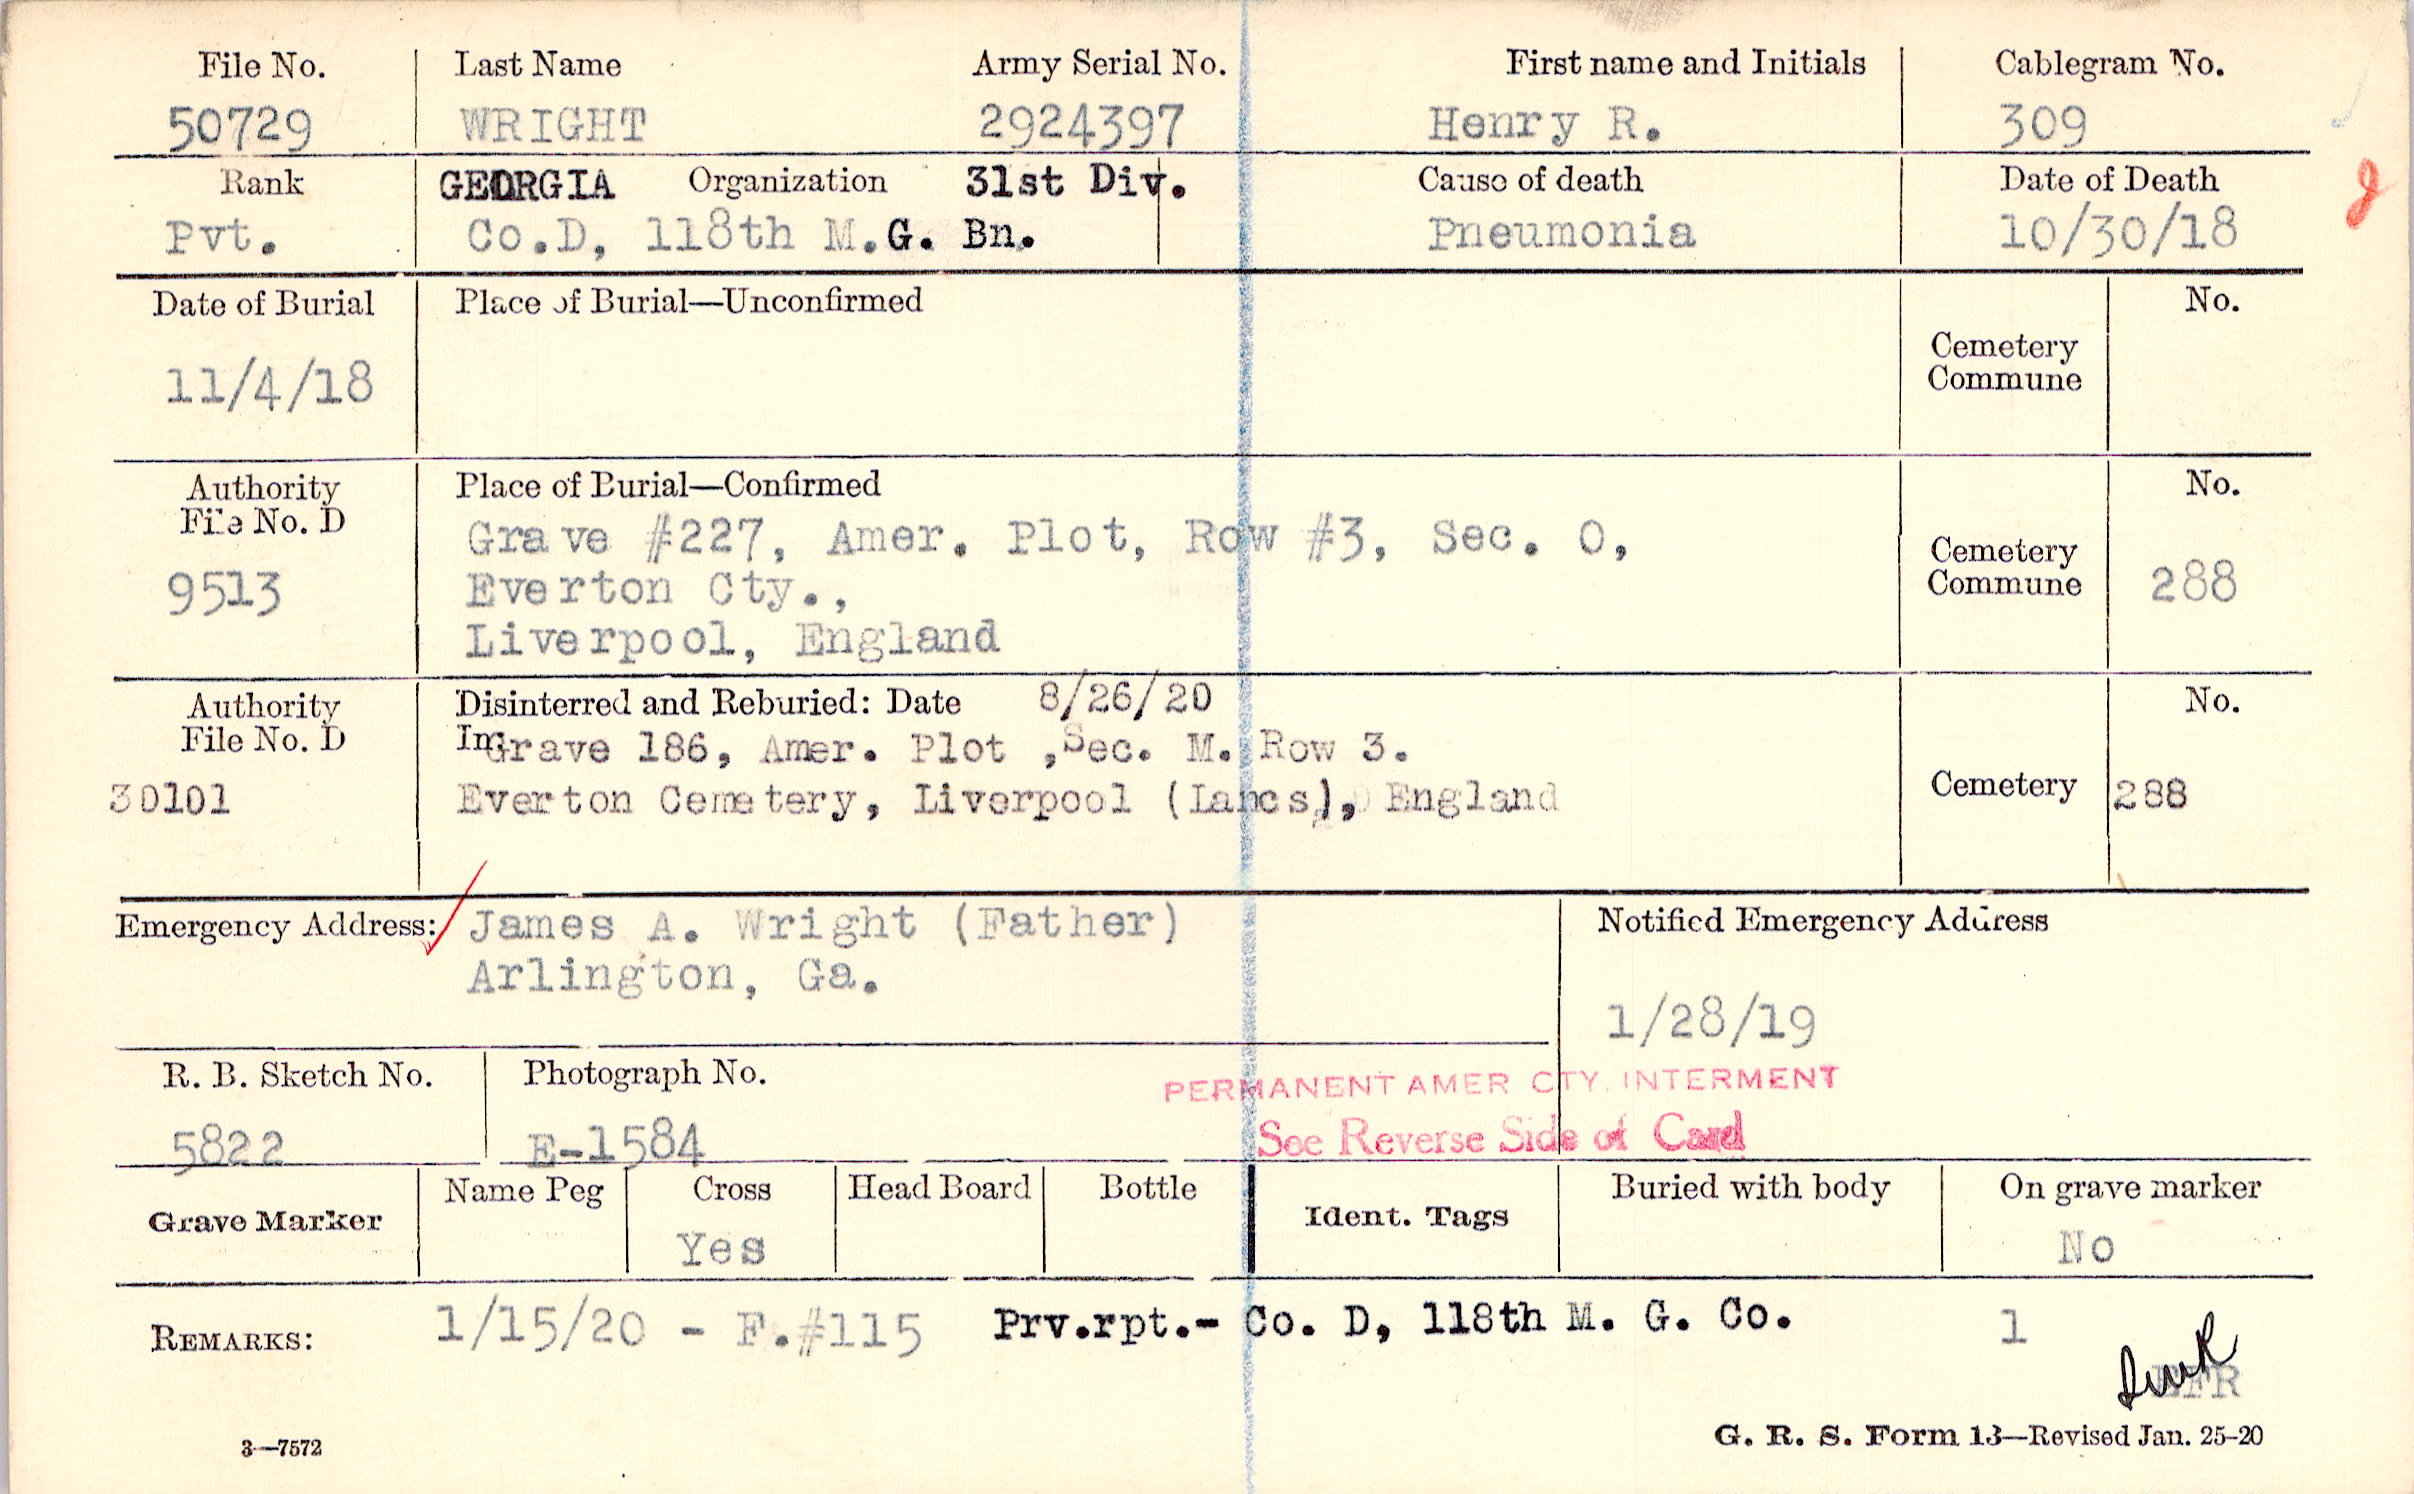 File No. Last Name Army Serial No. First name and Initials Cablegram No.
50729 WRIGHT 2924397 Henry R. 309
Rank GEORGIA Organization 31st Div. Cause of death Date of Death
Pvt. Co.D, 118th M.G. Bn. Pneumonia 10/30/18
Date of Burial Place of Burial—Unconfirmed No.
Cemetery
Commune
11/4/18
Authority Place of Burial—Confirmed No.
File No. D
Grave #227, Amer. Plot, Row #3, Sec. O,
Cemetery
Commune 288
9513 Everton Cty.,
Liverpool, England
Authority Disinterred and Reburied: Date 8/26/20 No.
File No. D In Grave 186, Amer. Plot ,Sec. M. Row 3.
30101 Everton Cemetery, Liverpool (Lancs), England Cemetery 288
Emergency Address: James A. Wright (Father) Notified Emergency Address
Arlington, Ga.
1/28/19
R. B. Sketch No. Photograph No. PERMANENT AMER CTY. INTERMENT
5822 E-1584 See Reverse Side of Card
Grave Marker Name Peg Cross Head Board Bottle Ident. Tags Buried with body On grave marker
Yes No
REMARKS: 1/15/20 - F.#115 Prv.rpt.- Co. D, 118th M. G. Co. 1
3—7572 G. R. S. Form 13—Revised Jan. 25-20